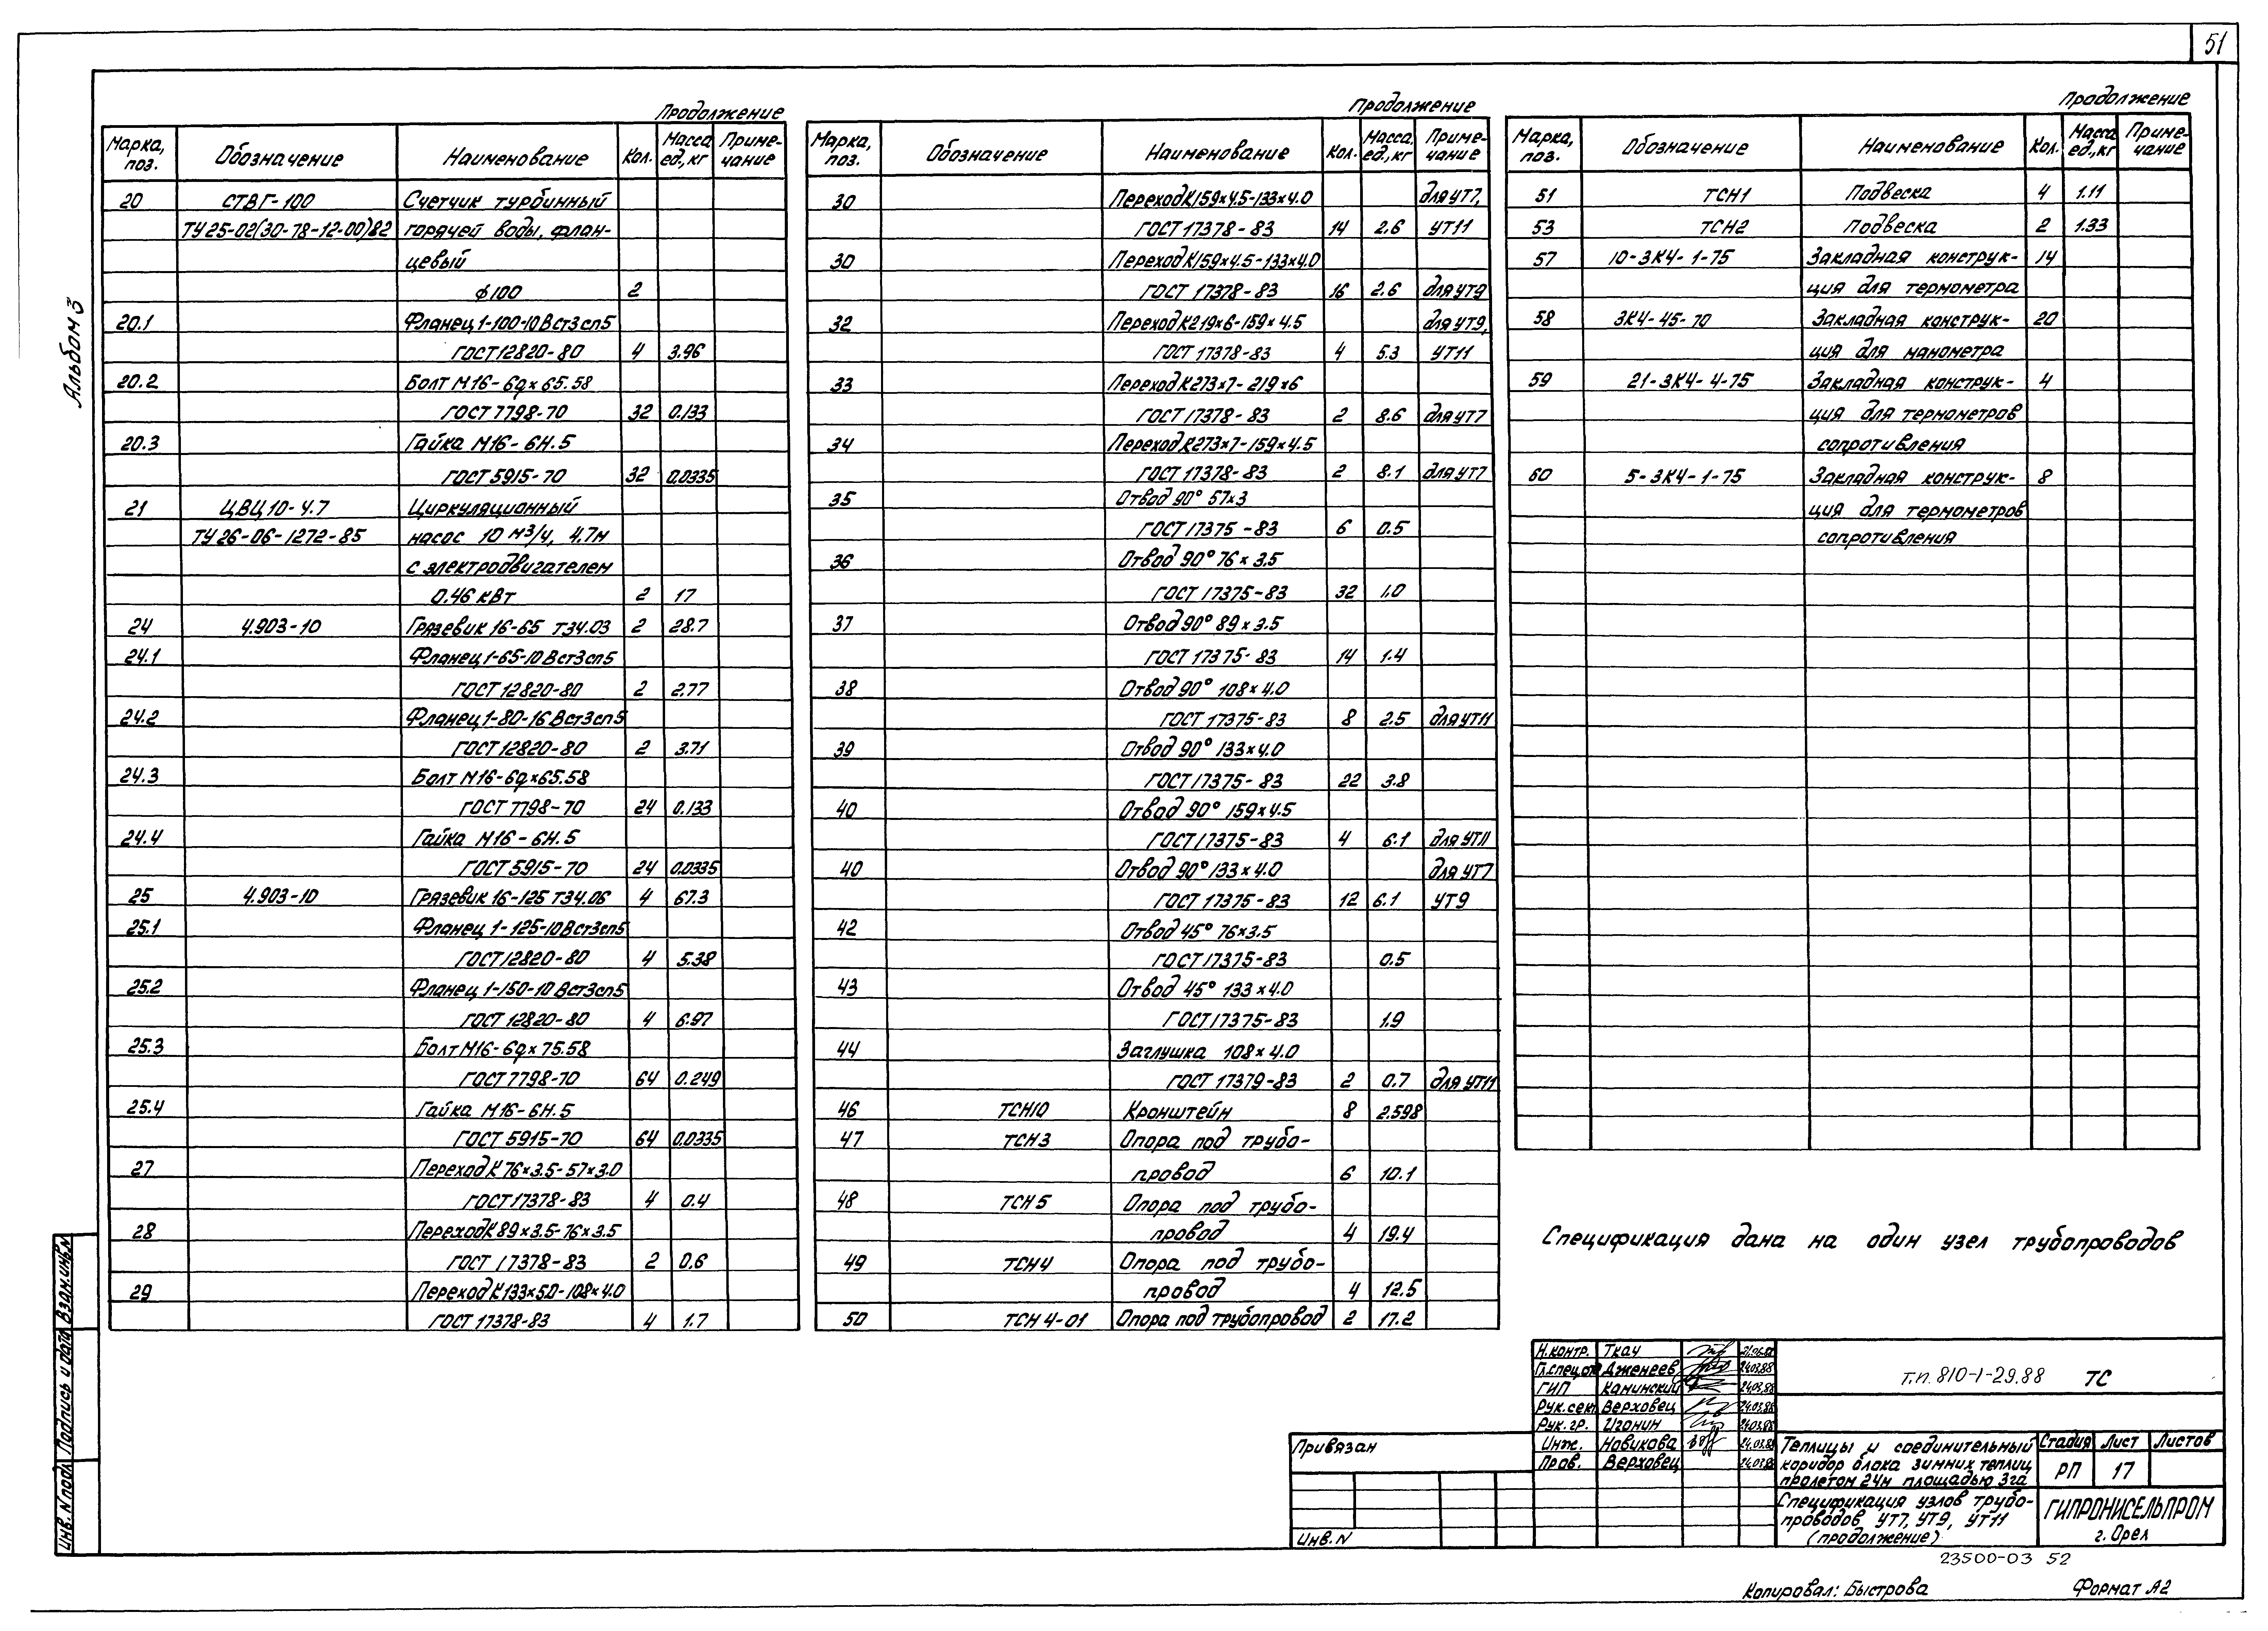 51
Альбом 3
Продолжение
Марка, поз. Обозначение Наименование Кол. Масса ед., кг Приме-чание
20 СТВГ-100 Счетчик турбинный
ТУ25-02(30-78-12-00)82 горячей воды, флан-
цевый
ф100 2
20.1 Фланец 1-100-10 Вст3сп5
ГОСТ 12820-80 4 3.96
20.2 Болт М16-6g×65.58
ГОСТ 7798-70 32 0.133
20.3 Гайка М16-6Н.5
ГОСТ 5915-70 32 0.0335
21 ЦВЦ10-4.7 Циркуляционный
ТУ26-06-1272-85 насос 10 м3/ч, 4.7м
с электродвигателем
0.46 кВт 2 17
24 4.903-10 Грязевик 16-65 Т34.03 2 28.7
24.1 Фланец 1-65-10 Вст3сп5
ГОСТ 12820-80 2 2.77
24.2 Фланец 1-80-16 Вст3сп5
ГОСТ 12820-80 2 3.71
24.3 Болт М16-6g×65.58
ГОСТ 7798-70 24 0.133
24.4 Гайка М16-6Н.5
ГОСТ 5915-70 24 0.0335
25 4.903-10 Грязевик 16-125 Т34.06 4 67.3
25.1 Фланец 1-125-10 Вст3сп5
ГОСТ 12820-80 4 5.38
25.2 Фланец 1-150-10 Вст3сп5
ГОСТ 12820-80 4 6.97
25.3 Болт М16-6g×75.58
ГОСТ 7798-70 64 0.249
25.4 Гайка М16-6Н.5
ГОСТ 5915-70 64 0.0335
27 Переход К 76×3.5-57×3.0
ГОСТ 17378-83 4 0.4
28 Переход К 89×3.5-76×3.5
ГОСТ 17378-83 2 0.6
29 Переход К133×5.0-108×4.0
ГОСТ 17378-83 4 1.7
Продолжение
Марка, поз. Обозначение Наименование Кол. Масса, ед., кг Приме-чание
30 Переход К159×4.5-133×4.0 для УТ7,
ГОСТ 17378-83 14 2.6 УТ11
30 Переход К159×4.5-133×4.0
ГОСТ 17378-83 16 2.6 для УТ9
32 Переход К219×6-159×4.5 для УТ9,
ГОСТ 17378-83 4 5.3 УТ11
33 Переход К273×7-219×6
ГОСТ 17378-83 2 8.6 для УТ7
34 Переход К273×7-159×4.5
ГОСТ 17378-83 2 8.1 для УТ7
35 Отвод 90° 57×3
ГОСТ 17375-83 6 0.5
36 Отвод 90° 76×3.5
ГОСТ 17375-83 32 1.0
37 Отвод 90° 89×3.5
ГОСТ 17375-83 14 1.4
38 Отвод 90° 108×4.0
ГОСТ 17375-83 8 2.5 для УТ11
39 Отвод 90° 133×4.0
ГОСТ 17375-83 22 3.8
40 Отвод 90° 159×4.5
ГОСТ 17375-83 4 6.1 для УТ11
40 Отвод 90° 133×4.0 для УТ7
ГОСТ 17375-83 12 6.1 УТ9
42 Отвод 45° 76×3.5
ГОСТ 17375-83 0.5
43 Отвод 45° 133×4.0
ГОСТ 17375-83 1.9
44 Заглушка 108×4.0
ГОСТ 17379-83 2 0.7 для УТ11
46 ТСН10 Кронштейн 8 2.598
47 ТСН3 Опора под трубо-
провод 6 10.1
48 ТСН5 Опора под трубо-
провод 4 19.4
49 ТСН4 Опора под трубо-
провод 4 12.5
50 ТСН 4-01 Опора под трубопровод 2 17.2
Продолжение
Марка, поз. Обозначение Наименование Кол. Масса ед., кг Приме-чание
51 ТСН1 Подвеска 4 1.11
53 ТСН2 Подвеска 2 1.33
57 10-ЗК4-1-75 Закладная конструк- 14
ция для термометра
58 ЗК4-45-70 Закладная конструк- 20
ция для манометра
59 21-ЗК4-4-75 Закладная конструк- 4
ция для термометров
сопротивления
60 5-ЗК4-1-75 Закладная конструк- 8
ция для термометров
сопротивления
Спецификация дана на один узел трубопроводов
Взам.инв.N
Подпись и дата
Инв.N подл
Н.контр. Ткач
Гл.спец.от Дженеев 24.03.88
ГИП Каминский 24.03.88
Рук.сек Верховец 24.03.88
Рук.гр. Игонин 24.03.88
Инж. Новикова 24.03.88
Пров. Верховец 24.03.88
Привязан
Инв.N
т.п. 810-1-29.88 ТС
Теплицы и соединительный
коридор блока зимних теплиц
пролетом 24м площадью 3га
Стадия Лист Листов
РП 17
Спецификация узлов трубо-
проводов УТ7, УТ9, УТ11
(продолжение)
ГИПРОНИСЕЛЬПРОМ
г. Орел
23500-03 52
Копировал: Быстрова Формат А2